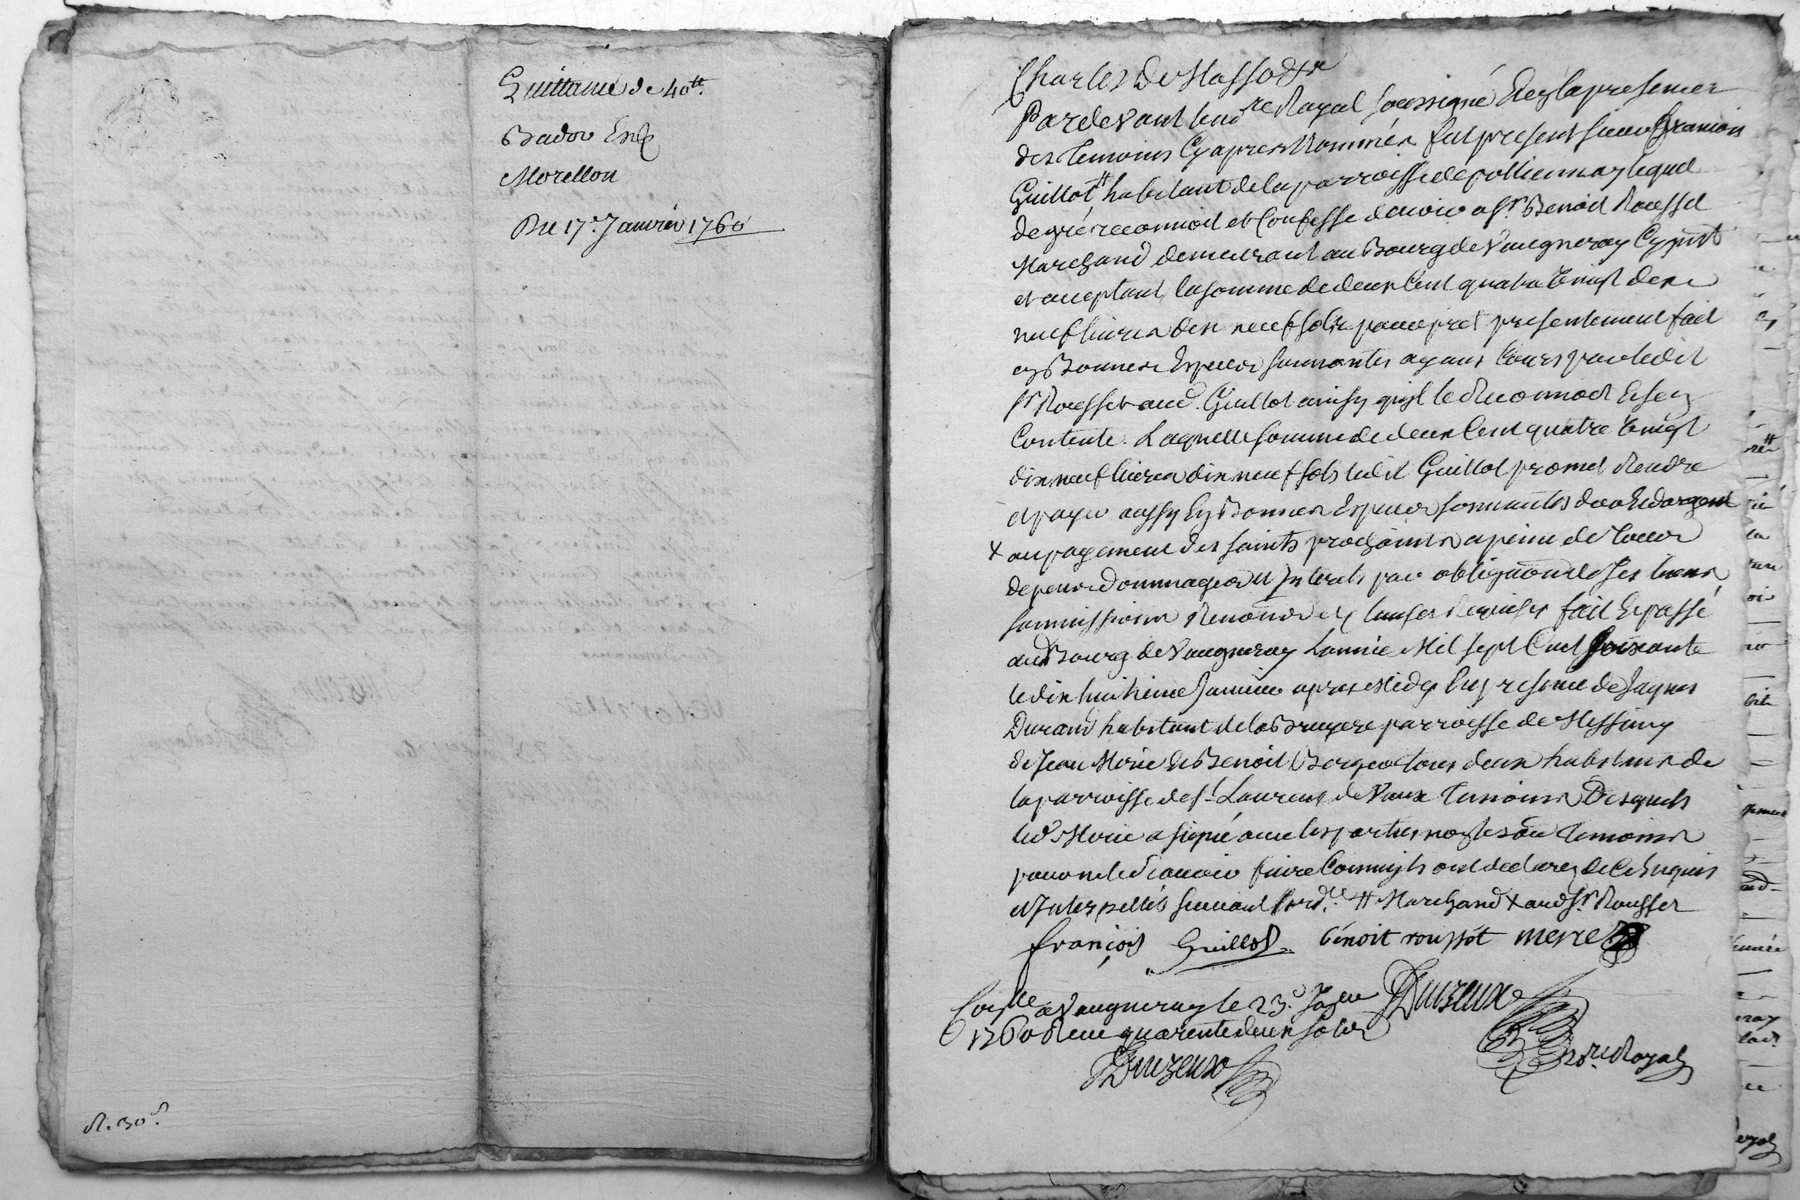 Quittance de 40#.
Badou Et
Morellon
Du 17.e Janvier 1760
R. 30 s.
Charles De Masso &a
Pardevant le no.re Royal soussigné Et En la presence
des temoins Cyapres Nommés fut present sieur françois
Guillot # habitant de la parroisse de pollionnay lequel
de gré reconnoit et Confesse devoir a Sr Benoit Rousset
Marchand demeurant au Bourg de Vaugneray Cy pnt
et acceptant la somme de deux Cent quatre Vingt dix
neuf livres dix neuf sols pour pret presentement fait
en Bonnes Especes sonnantes ayant Cours par ledit
Sr Rousset aud. Guillot ainsy qu'il le Reconnoit Et s'en
Contente. Laquelle somme de deux Cent quatre Vingt
dix neuf livres dix neuf sols ledit Guillot promet Rendre
et payer aussy En Bonnes Especes sonnantes d'or Et d'argent
x au payement des saints prochains a peine de tous
depens dommages et Interets par obligaõn de ses biens
soumissions Renõns et Clauses Requises fait Et passé
aud Bourg de Vaugneray L'année Mil sept Cent soixante
le dix huitieme Janvier apres Midy En presence de Jaques
Durand habitant de la Bruyere parroisse de Messimy
de Jean Morie Et Benoit Berger tous deux habitants de
la parroisse de St Laurent de Vaux temoins Desquels
led Morie a signé avec les parties non les au.e temoins
pour ne le sçavoir faire Comm'ils ont declaré de Ce Enquis
et Interpellés suivant l'ord.ce # Marchand x aud Sr Rousset
françois Guillot benoit roussot merie
Con.lle a Vaugneray le 23.e Jan.er Duzeux
1760 Reçu quarente deux sols no.re Royal
Duzeux